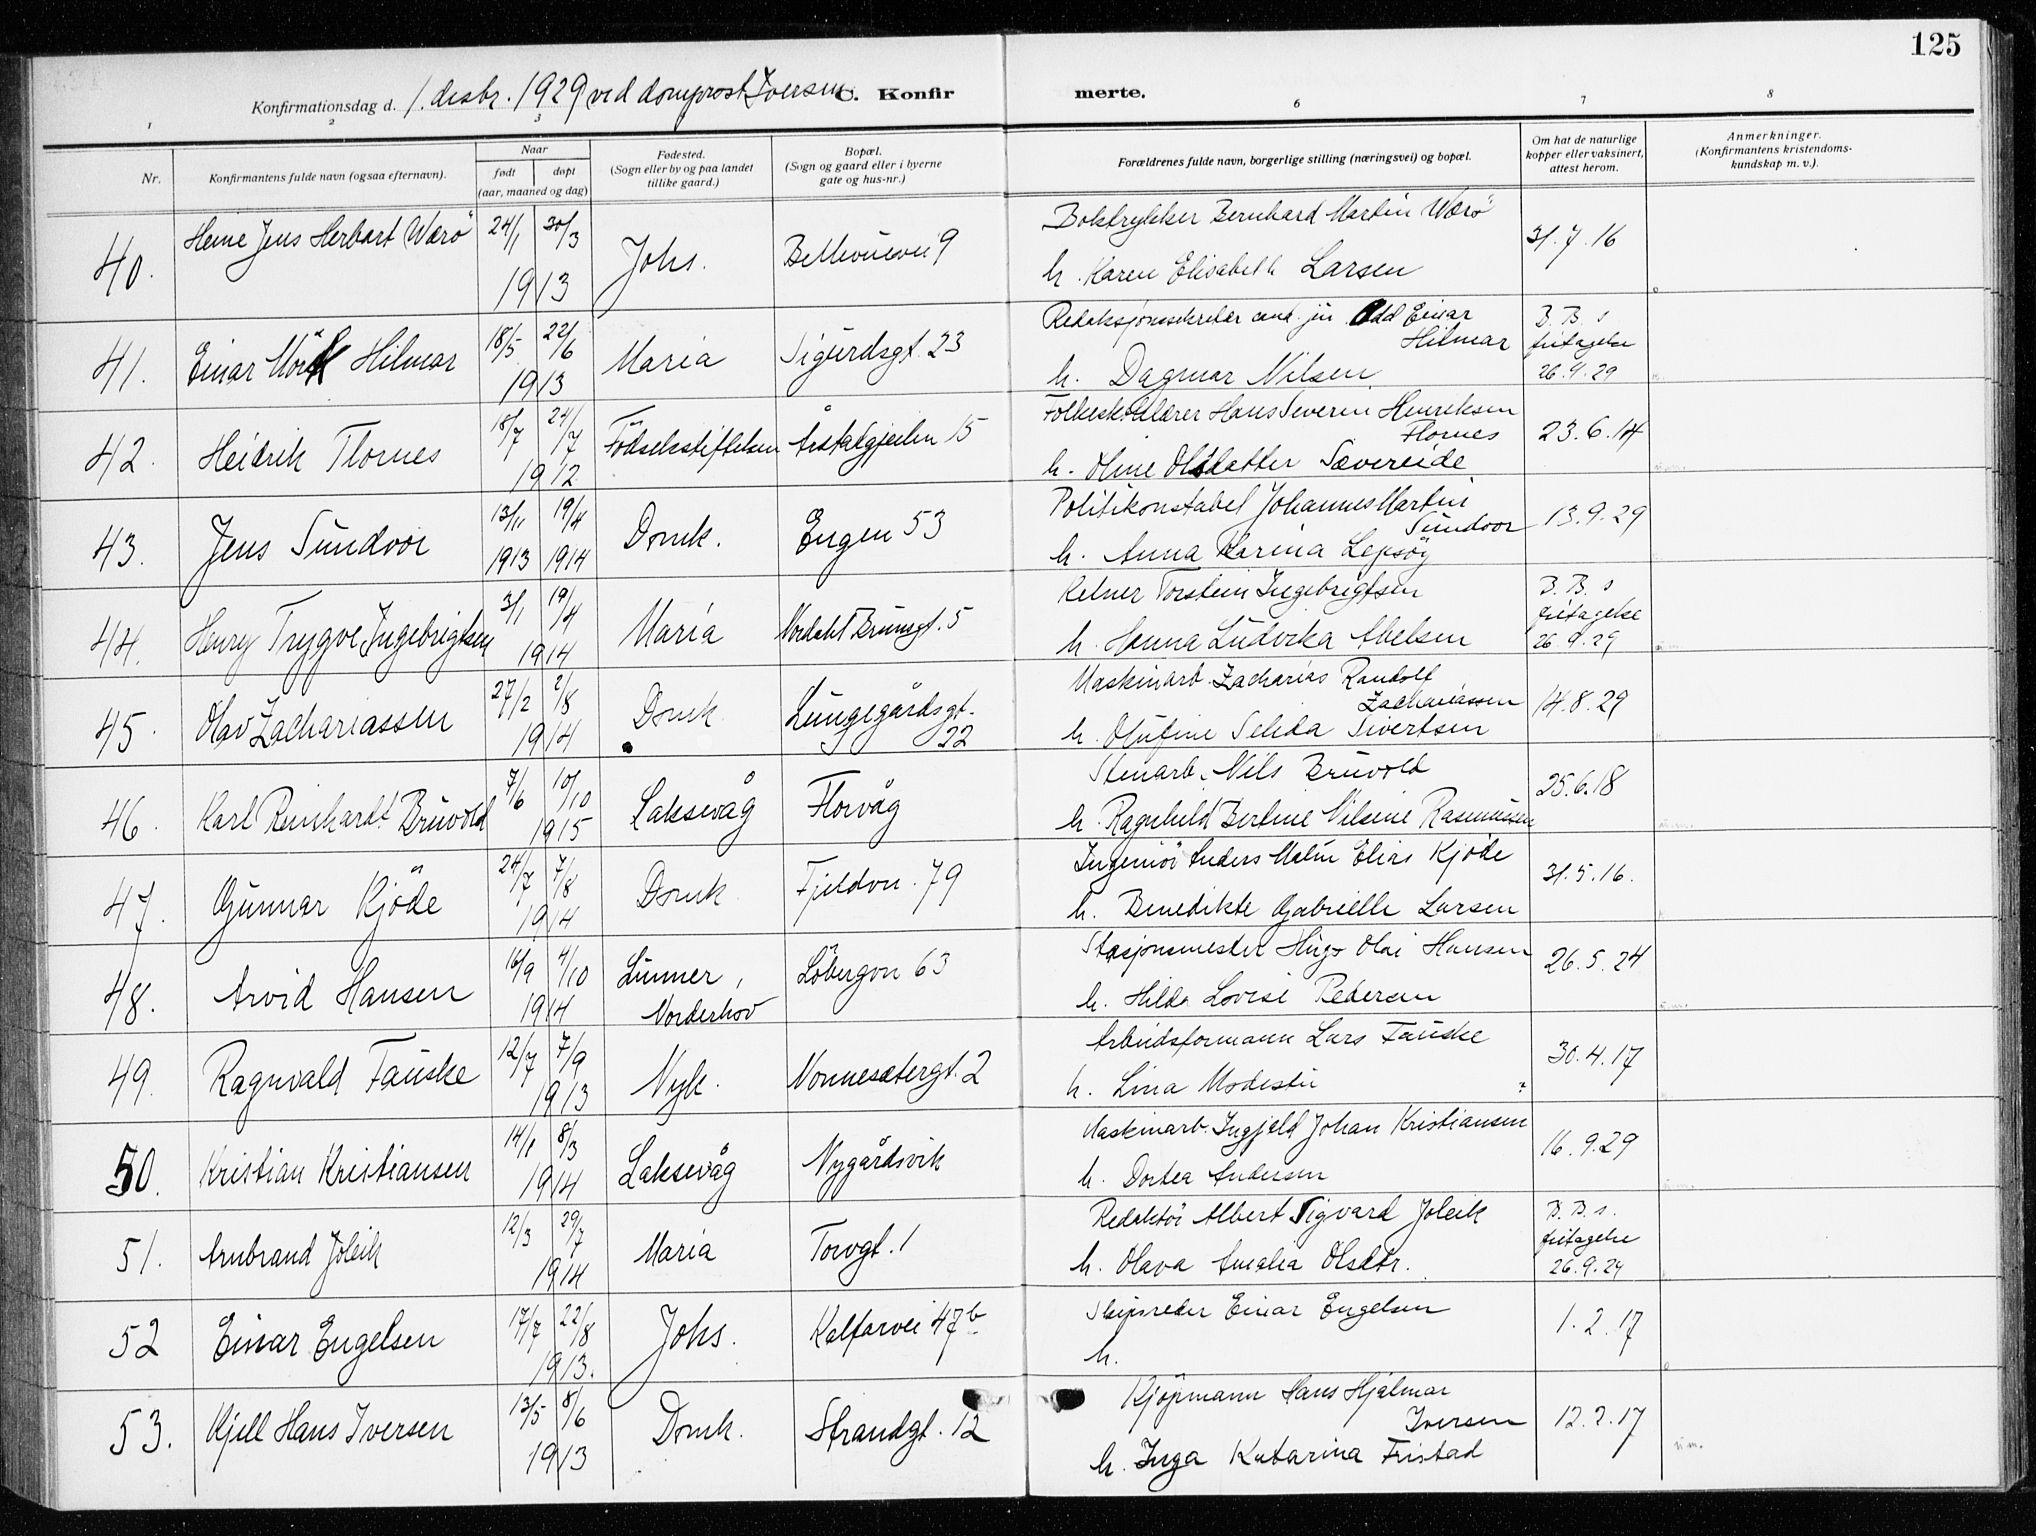 125
Konfirmationsdag d. 1. desbr. 1929 ved domprost Iversen C. Konfir merte.
1 2 3 6 7 8
Nr. Konfirmantens fulde navn (ogsaa efternavn). Naar født døpt (aar, maaned og dag) Fødested. (Sogn eller by og paa landet tillike gaard.) Bopæl. (Sogn og gaard eller i byerne gate og hus-nr.) Forældrenes fulde navn, borgerlige stilling (næringsvei) og bopæl. Om hat de naturlige kopper eller vaksinert, attest herom. Anmerkninger. (Konfirmantens kristendoms-kundskap m. v.).
40. Heine Jens Herbart Wærö 24/1 30/3 1913 Johs. Bellevuevei 9 Boktrykker Bernhard Martin Wærö 31.7.16
h. Karen Elisabeth Larsen
41. Einar Mörk Hilmar 18/5 22/6 1913 Maria Sigurdsgt. 23 Redaksjonssekretær cand. jur. Odd Einar Hilmar B. B. s fritagelse 26.9.29
h. Dagmar Nilsen
42. Heidrik Flornes 18/7 24/7 1912 Födselsstiftelsen Årstadgjeilen 15 Folkeskolelærer Hans Severin Henriksen Flornes 23.6.14
h. Oline Olsdatter Sævereide
43. Jens Sundvor 13/11 1913 19/4 1914 Domk. Engen 53 Politikonstabel Johannes Martin Sundvor 13.9.29
h. Anna Karina Lepsöy
44. Henry Trygve Ingebrigtsen 3/1 19/4 1914 Maria Nordahl Brunsgt. 5 Kelner Torstein Ingebrigtsen B. B. s fritagelse 26.9.29
h. Hanna Ludvika Abelsen
45. Olav Zachariassen 27/2 2/8 1914 Domk Lungegårdsgt. 22 Maskinarb. Zacharias Randolf Zachariassen 14.8.29
h. Olufine Selida Sivertsen
46. Karl Reinhardt Bruvold 7/6 10/10 1915 Laksevåg Florvåg Stenarb. Nils Bruvold 25.6.18
h. Ragnhild Bertine Nilsine Rasmussen
47. Gunnar Kjöde 24/7 7/8 1914 Domk Fjeldvn. 79 Ingeniör Anders Malm Elias Kjöde 31.5.16.
h. Benedikte Gabrielle Larsen
48. Arvid Hansen 16/9 4/10 1914 Lunner, Norderhov Löbergvn 63 Stasjonsmester Hugo Olai Hansen 26.5.24
h. Hilda Lovise Pedersen
49. Ragnvald Fauske 12/7 7/9 1913 Nyk. Nonnesætergt. 2 Arbeidsformann Lars Fauske 30.4.17
h. Lina Modestu ?
50. Kristian Kristiansen 14/1 8/3 1914 Laksevåg Nygårdsvik Maskinarb. Ingjald Johan Kristiansen 16.9.29
h. Dortea Andersen
51. Arnbrand Jöleik 12/3 29/7 1914 Maria Torvgt. 1 Redaktör Albert Sigvard Joleik B. B. s. fritagelse 26.9.29
h. Olava Amalia Olsdtr.
52 Einar Engelsen 17/7 22/8 1913. Johs. Kalfarvei 47b Skipsreder Einar Engelsen 1.2.17
h.
53. Kjell Hans Iversen 13/5 8/6 1913 Domk. Strandgt. 12 Kjöpmann Hans Hjalmar Iversen 12.2.17
h. Inga Katarina Fristad